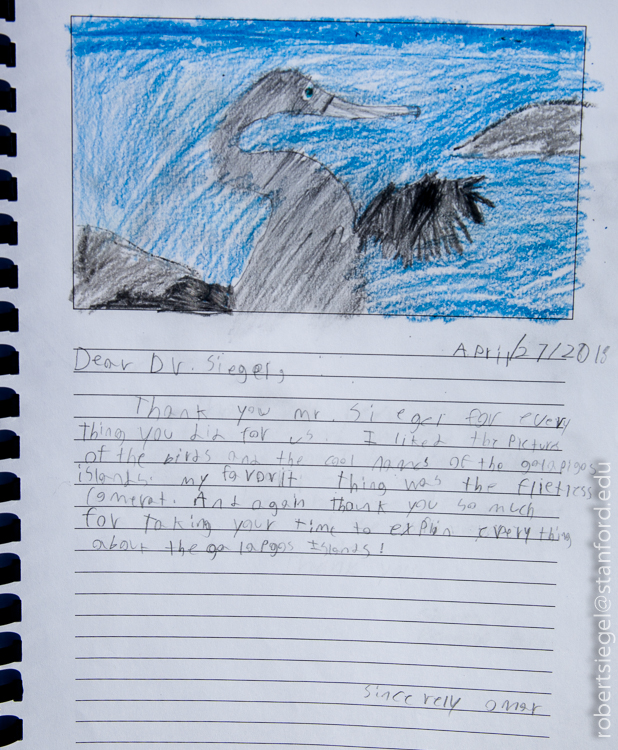 April/27/2018
Dear Dr. Sieger,
Thank you mr. Sieger for every
thing you did for us. I liked the picture
of the birds and the cool names of the galapigos
islands. my favorit thing was the flietless
Camerat. And again thank you so much
for taking your time to expin everything
about the galapgos Islands!
sincerely omar
robertsiegel@stanford.edu